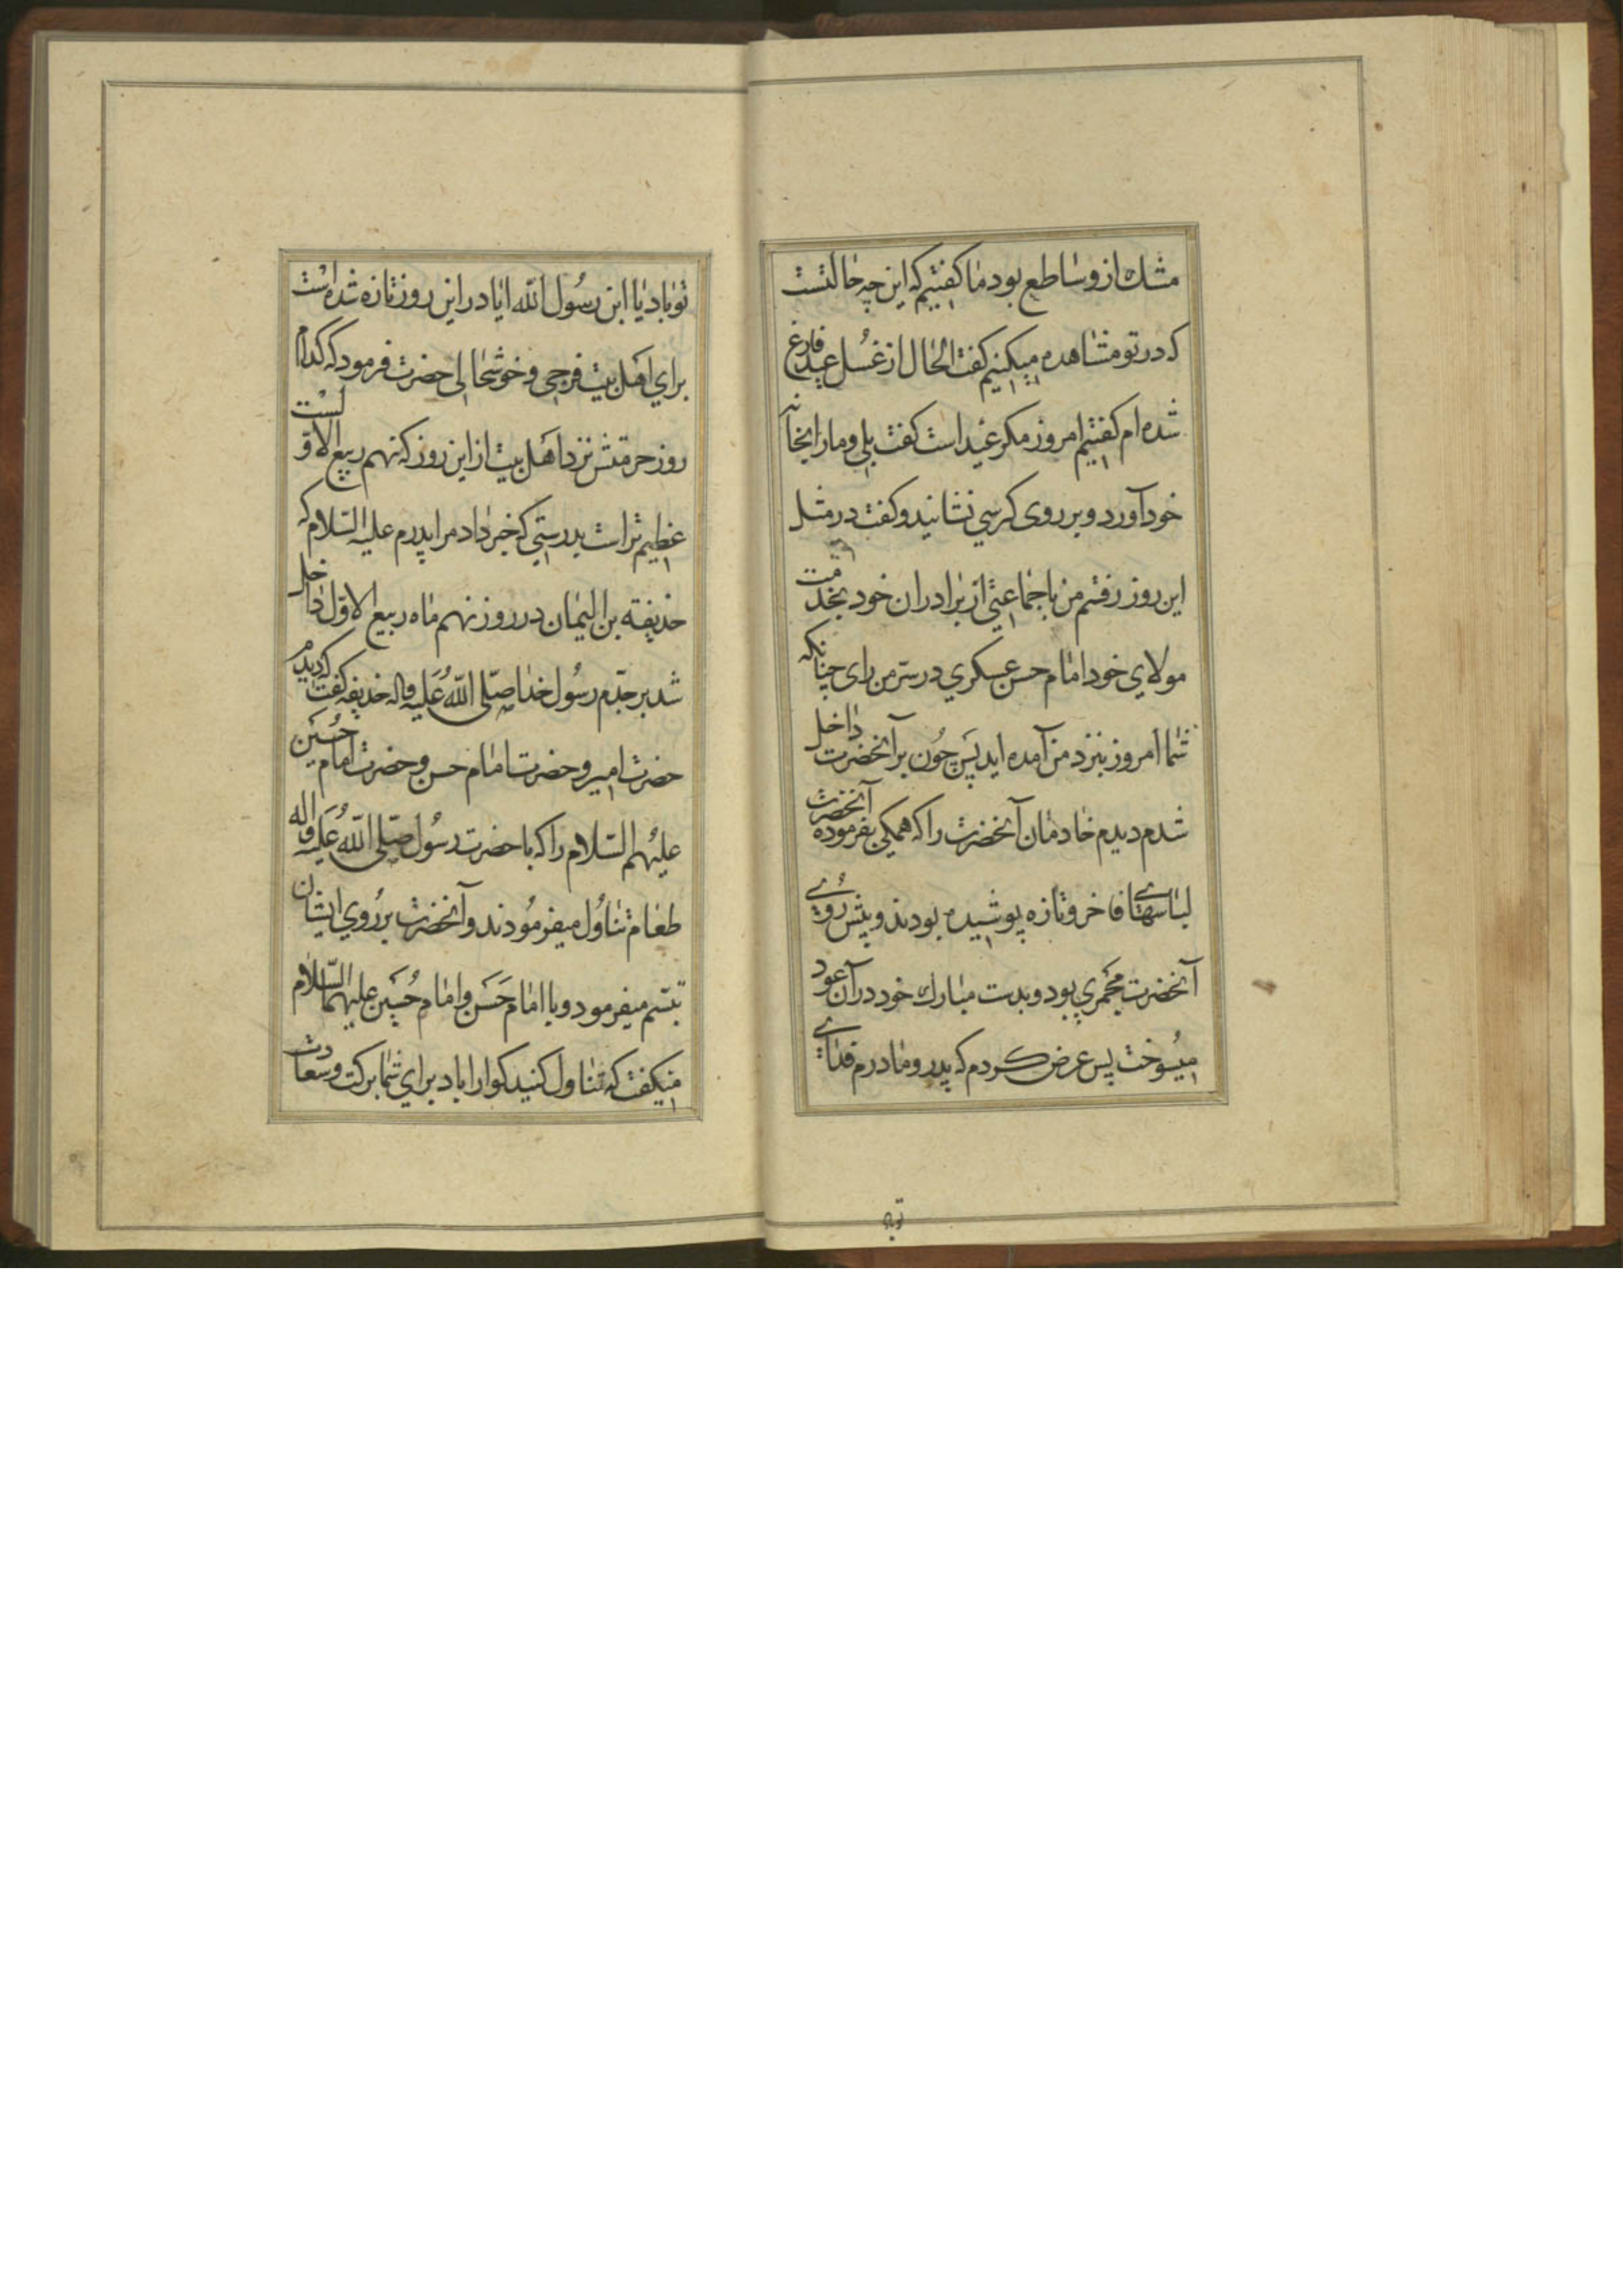 مشك ازو ساطع بود ما كفتيم كه اين چه حالتست
كه در تو مشاهده ميكنيم كفت الحال از غسل عيد فارغ
شده ام كفتيم امروز مكر عيد است كفت بلى و ما را بخانه
خود آورد و بر روى كرسي نشانيد و كفت در مثل
اين روز رفتم من با جماعتي از برادران خود بخدمت
مولاي خود امام حسن عسكري در سرّ من راى چنانكه
شما امروز بنزد من آمده ايد پس چون بر آنحضرت داخل
شدم ديدم خادمان آنحضرت را كه همكي بفرموده آنحضرت
لباسهاي فاخر و تازه پوشيده بودند و پيش رُوي
آنحضرت مجمري بود و بدست مبارك خود در آن عود
ميسوخت پس عرض كردم كه پدر و مادرم فداي
تو باد
تو باد يا ابن رسُول الله ايا در اين روز تازه شده است
براي اهل بيت فرجى و خوشحالى حضرت فرمود كه كدام
روز حرمتش نزد اهل بيت از اين روز كه نهم ربيع الاوّلست
عظيم تر است بدرستي كه خبر داد مرا پدرم عليه السّلام كه
حذيفة بن اليمان در روز نهم ماه ربيع الاوّل داخل
شد بر جدّم رسُول خدا صلّى اللهُ عَليه واله حذيفه كفت كه ديدم
حضرت امير و حضرت امام حسن و حضرت امام حُسَين
عليهُم السّلام را كه با حضرت رسُول صلّى اللهُ عَليه واله
طعام تناوُل ميفرمُودند و آنحضرت بر رُوي ايشان
تبسّم ميفرمود و با امام حَسَن و امام حُسَين عليهما السّلام
ميكفت كه تناول كنيد كوارا باد براي شما بركت و سعادت